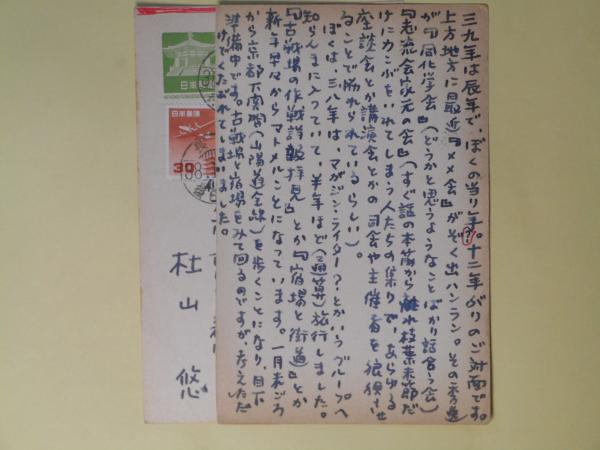 三九年は辰年で、ぼくの当り年。十二年がりのご対面です。
上方地方に最近『××会』がぞく出ハンラン。その
が『同化学会』(どうかと思うようなことばかり話合う会)
『志流会家元の会』(すぐ話の本筋から離れ枝葉末節だ
けにカンぶをいれてしまう人たちの集りで、あらゆる
座談会とか講演会とかの司会や主催者を狼狽させ
ることで恐れられているらしい)。
ぼくは、三八年は、マガジン・ライター?とかいうグループへ
知らんまに入っていて、半年ほど(通算)旅行しました。
『古戦場の作戦詳報拝見』とか『宿場と街道』とか
新年早々からマトメルことになっています。一月末ごろ
から京都下関間(山陽道全線)を歩くことになり、目下
準備中です。古戦場と宿場をみて回るのですが、考えただ
けでくたびれてしまいました。
日本郵便
日本郵便
30
杜山 悠